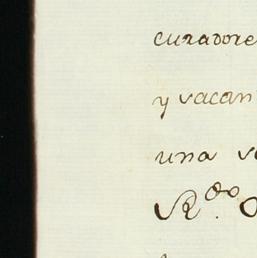 curadore
y vacan
una
R.do